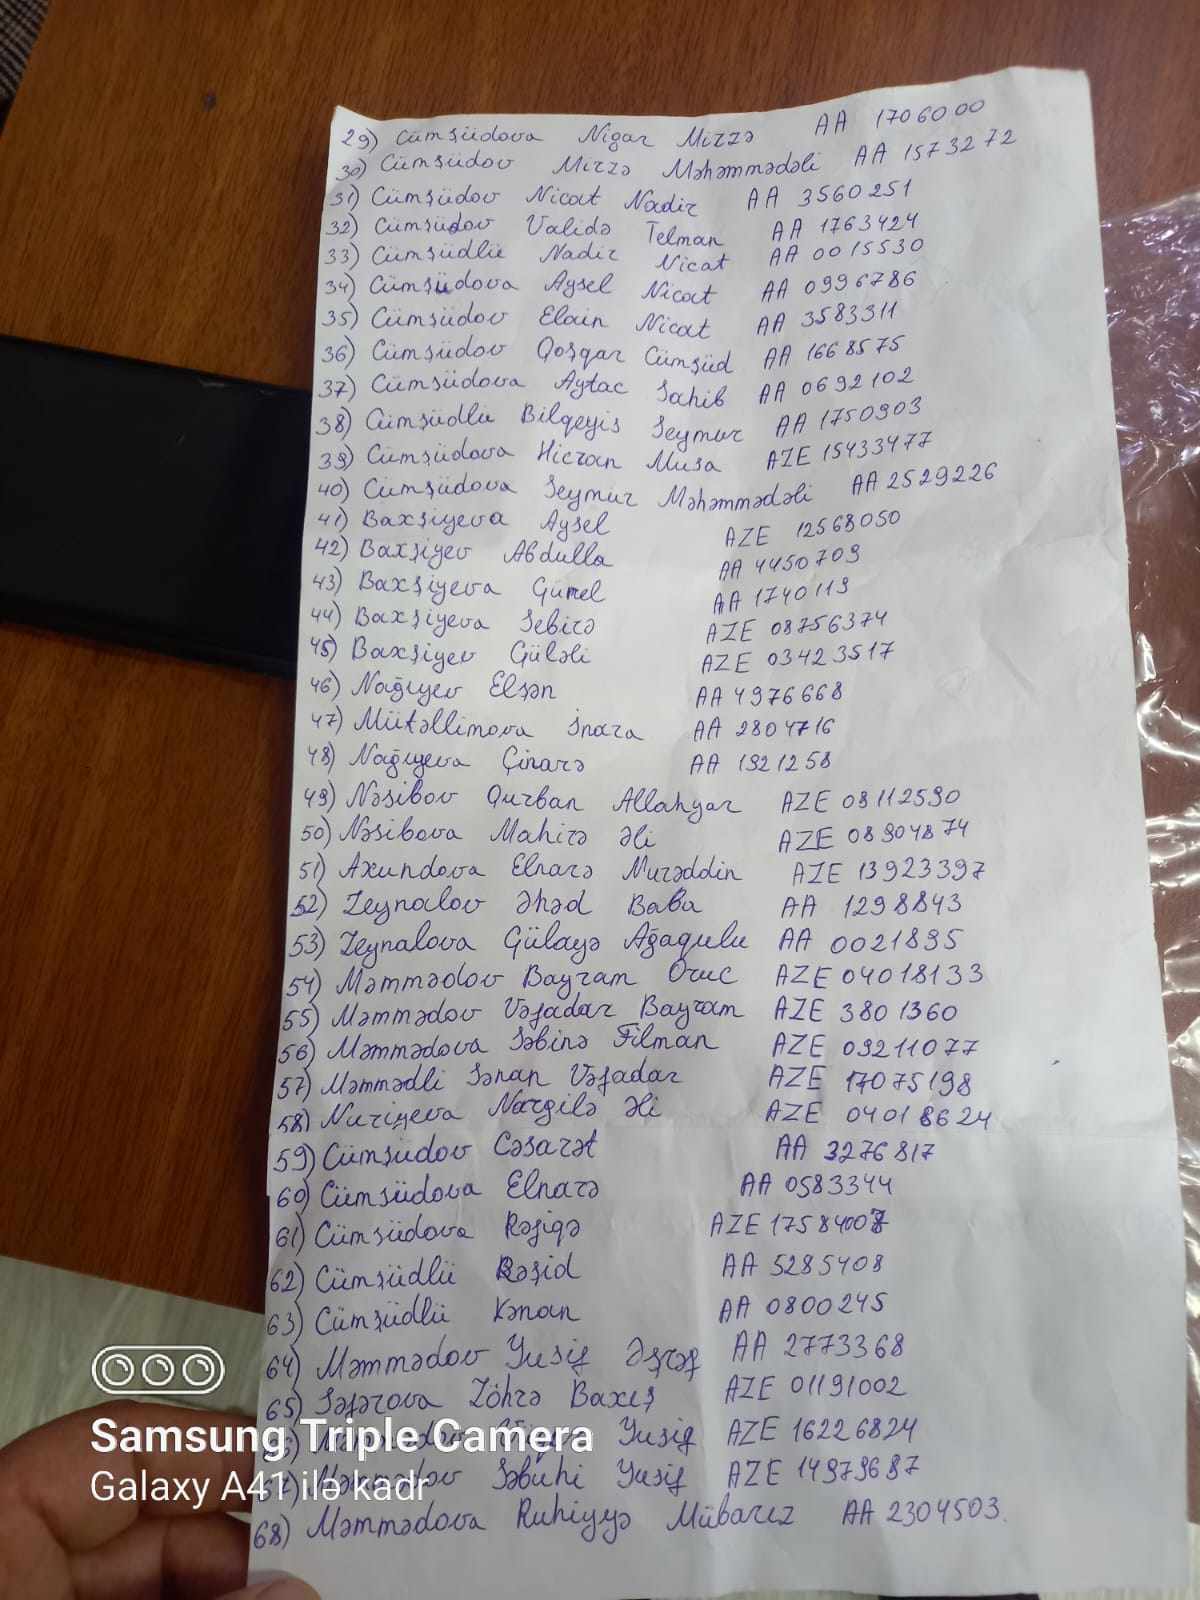 29) Cümşüdova Nigar Mirzə AA 1706000
30) Cümşüdov Mirzə Məhəmmədəli AA 1573272
31) Cümşüdov Nicat Nadir AA 3560251
32) Cümşüdov Validə Telman AA 1763424
33) Cümşüdlü Nadir Nicat AA 0015530
34) Cümşüdova Aysel Nicat AA 0996786
35) Cümşüdov Elain Nicat AA 3583311
36) Cümşüdov Qoşqar Cümşüd AA 1668575
37) Cümşüdova Aytac Sahib AA 0692102
38) Cümşüdlü Bilqeyis Seymur AA 1750903
39) Cümşüdova Hicran Musa AZE 15433477
40) Cümşüdova Seymur Məhəmmədəli AA 2529226
41) Baxşiyeva Aysel AZE 12568050
42) Baxşiyev Abdulla AA 4450709
43) Baxşiyeva Günel AA 1740119
44) Baxşiyeva Sebirə AZE 08756374
45) Baxşiyev Güləli AZE 03423517
46) Nağıyev Elşən AA 4976668
47) Mütəllimova İnara AA 2804716
48) Nağıyeva Çinarə AA 1921258
49) Nəsibov Qurban Allahyar AZE 09112590
50) Nəsibova Mahirə Əli AZE 08904874
51) Axundova Elnarə Nurəddin AZE 13923397
52) Zeynalov Əhəd Baba AA 1298843
53) Zeynalova Gülayə Ağaqulu AA 0021895
54) Məmmədov Bayram Oruc AZE 04018133
55) Məmmədov Vəfadar Bayram AZE 3801360
56) Məmmədova Səbinə Filman AZE 09211077
57) Məmmədli Sənan Vəfadar AZE 17075198
58) Nuriyeva Nargilə Əli AZE 04018624
59) Cümşüdov Cəsarət AA 3276817
60) Cümşüdova Elnarə AA 0583344
61) Cümşüdova Rəfiqə AZE 1758400
62) Cümşüdlü Rəşid AA 5285408
63) Cümşüdlü Kənan AA 0800245
64) Məmmədov Yusif Əşrəf AA 2773368
65) Səfərova Zöhrə Baxış AZE 01191002
Yusif AZE 16226824
67) Məmmədov Səbuhi Yusif AZE 14979687
68) Məmmədova Ruhiyyə Mübariz AA 2304503.
Samsung Triple Camera
Galaxy A41 ilə kadr